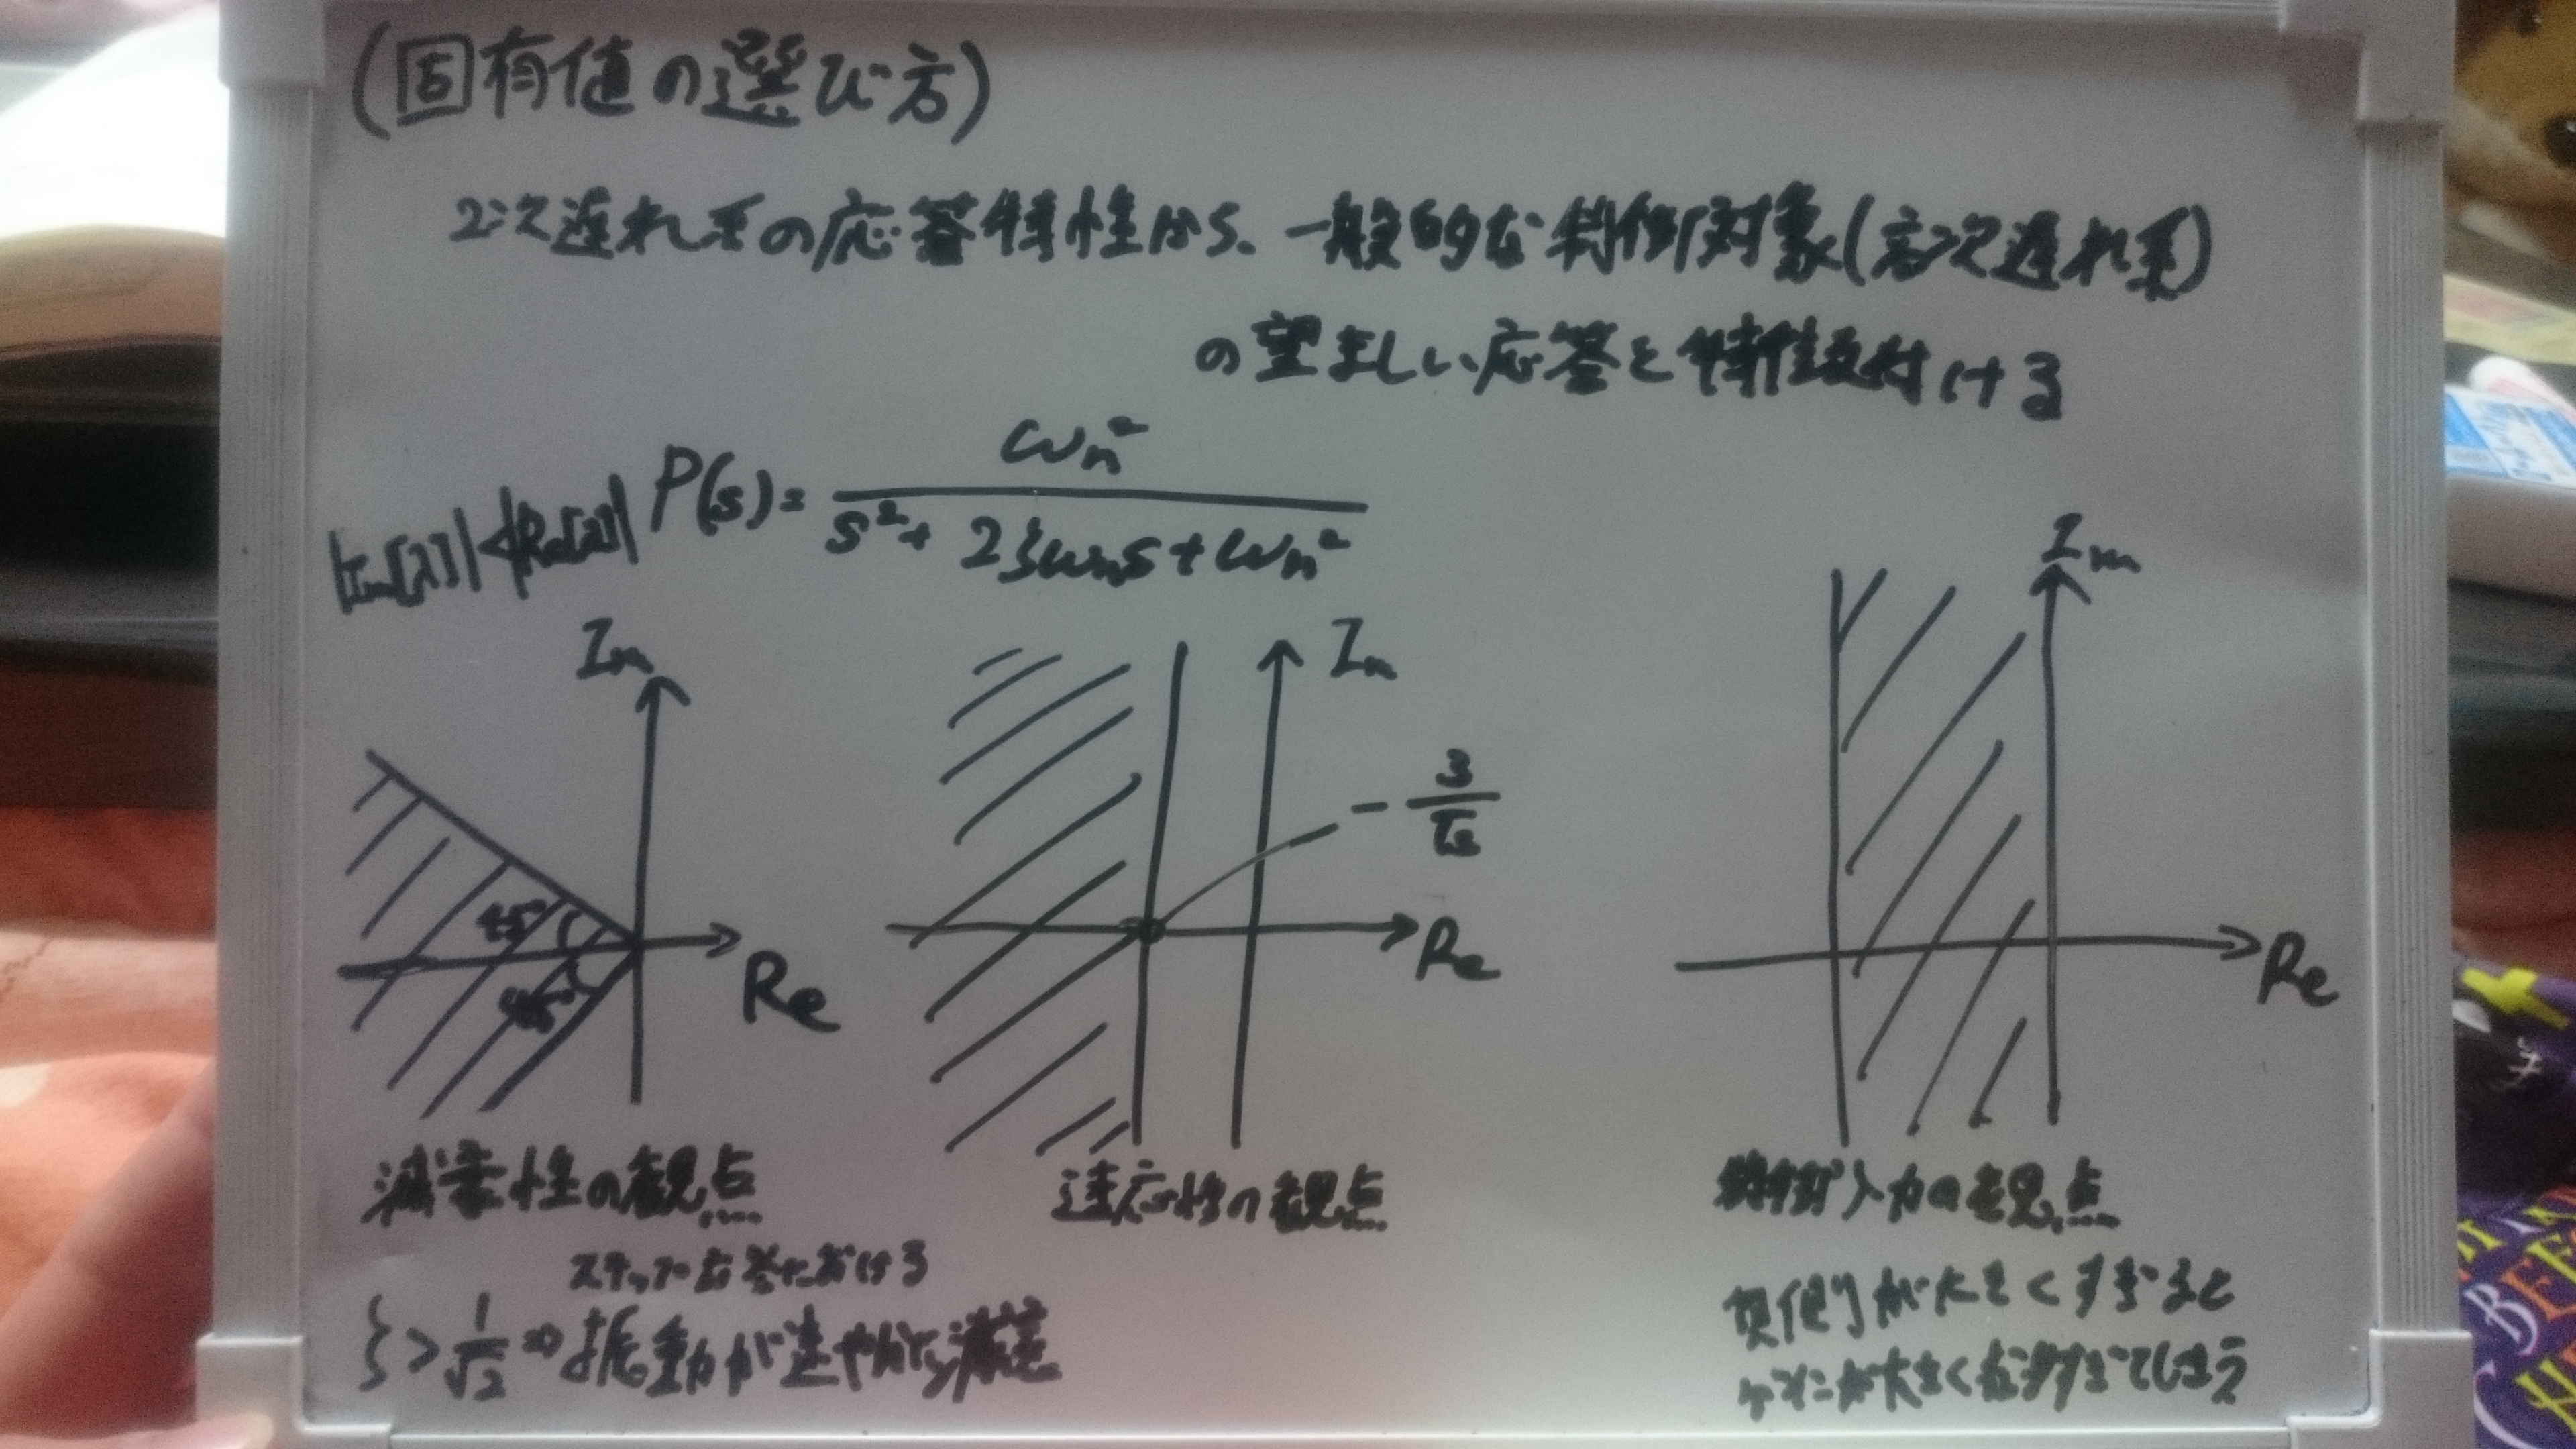 (固有値の選び方)
2次遅れ系の応答特性から、一般的な制御対象(高次遅れ系)
の望ましい応答を特徴付ける
P(s) = ωn² / (s² + 2ζωns + ωn²)
|Im[λ]| < |Re[λ]|
Im
45°
45°
Re
減衰性の観点
ステップ応答における
ζ > 1/√2 ⇒ 振動が速やかに減衰
Im
Re
速応性の観点
Im
Re
制御入力の観点
負側が大きくすぎると
ゲインが大きくなりすぎてしまう